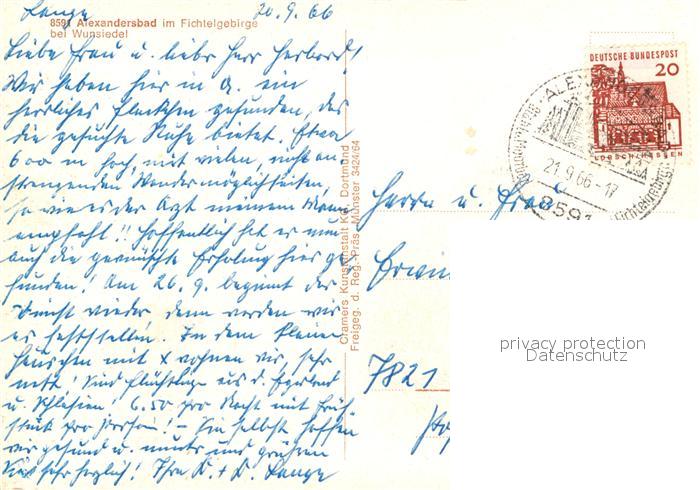 Lange 20.9.66
8591 Alexandersbad im Fichtelgebirge
bei Wunsiedel
Liebe Frau u. lieber Herr Herbord!
Wir haben hier in A. ein
herrliches Fleckchen gefunden, das
die gesuchte Ruhe bietet. Etwa
600 m hoch, mit vielen, nicht an-
strengenden Wandermöglichkeiten,
so wie es der Arzt meinem Mann
empfahl!! Hoffentlich hat er nun
auch die gewünschte Erholung hier ge-
funden! Am 26.9. beginnt der
Dienst wieder, dann werden wir
es feststellen. In dem kleinen
Häuschen mit x wohnen wir, sehr
nett! Sind Flüchtlinge aus d. Egerland
u. Schlesien. 6.50 pro Nacht mit Früh-
stück pro Person! - Sie selbst hoffen
wir gesund u. munter und grüßen
Sie sehr herzlich! Ihre K. + D. Lange
Cramers Kunstanstalt KG., Dortmund
Freigeg. d. Reg.-Präs. Münster 3424/64
DEUTSCHE BUNDESPOST
20
LORSCH/HESSEN
21.9.66-17
8591
Herrn u. Frau
Erwin
7821
privacy protection
Datenschutz